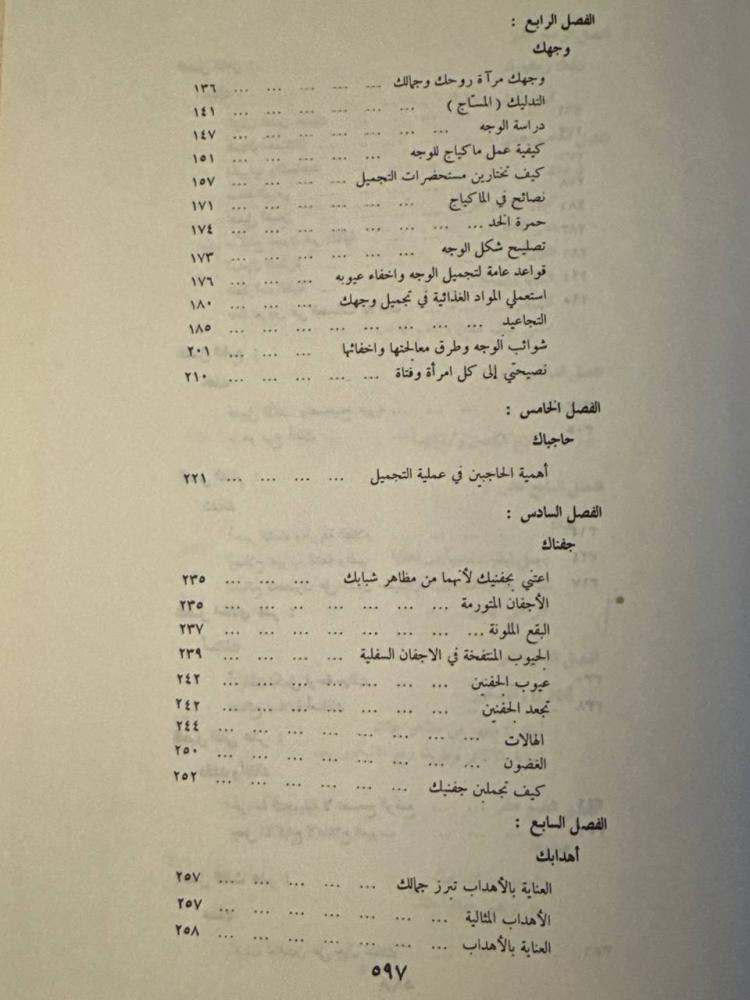 الفصل الرابع :
وجهك
وجهك مرآة روحك وجمالك ... ... ... ... ... ١٣٦
التدليك ( المسّاج ) ... ... ... ... ... ... ١٤١
دراسة الوجه ... ... ... ... ... ... ١٤٧
كيفية عمل ماكياج للوجه ... ... ... ... ... ١٥١
كيف تختارين مستحضرات التجميل ... ... ... ... ١٥٧
نصائح في الماكياج ... ... ... ... ... ... ١٧١
حمرة الخد ... ... ... ... ... ... ... ١٧٤
تصليح شكل الوجه ... ... ... ... ... ... ١٧٣
قواعد عامة لتجميل الوجه واخفاء عيوبه ... ... ... ١٧٦
استعملي المواد الغذائية في تجميل وجهك ... ... ... ١٨٠
التجاعيد ... ... ... ... ... ... ... ١٨٥
شوائب الوجه وطرق معالجتها واخفائها ... ... ... ٢٠١
نصيحتي إلى كل امرأة وفتاة ... ... ... ... ... ٢١٠
الفصل الخامس :
حاجباك
أهمية الحاجبين في عملية التجميل ... ... ... ... ٢٢١
الفصل السادس :
جفناك
اعتني بجفنيك لأنهما من مظاهر شبابك ... ... ... ٢٣٥
الأجفان المتورمة ... ... ... ... .. ... ٢٣٥
البقع الملونة ... ... ... ... ... ... ... ٢٣٧
الجيوب المنتفخة في الاجفان السفلية ... ... ... ... ٢٣٩
عيوب الجفنين ... ... ... ... ... ... ٢٤٢
تجعد الجفنين ... ... ... ... ... ... ٢٤٢
الهالات ... ... ... ... ... ... ... ٢٤٤
الغضون ... ... ... ... ... ... ... ٢٥٠
كيف تجملين جفنيك ... ... ... ... ... ... ٢٥٢
الفصل السابع :
أهدابك
العناية بالأهداب تبرز جمالك ... ... ... ... ... ٢٥٧
الأهداب المثالية ... ... ... ... ... ... ... ٢٥٧
العناية بالأهداب ... ... ... ... ... ... ... ٢٥٨
٥٩٧